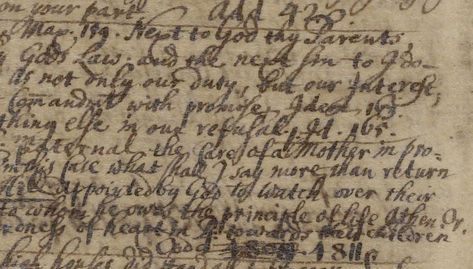 on your part. Add 428.
Max. 159. Next to God thy Parents
Gods Law, and the next sin to Ido-
is not only our duty, but our interest,
Comandmt with promise, Idem 163.
thing else in our refusal, Id. 165.
eternal the Cares of a Mother in pro-
in this case what shall I say more than return
appointed by God to watch over their
to whom he owes the principle of life Athen. Or.
ness of heart in towards their children
Add 1811.
high houses did